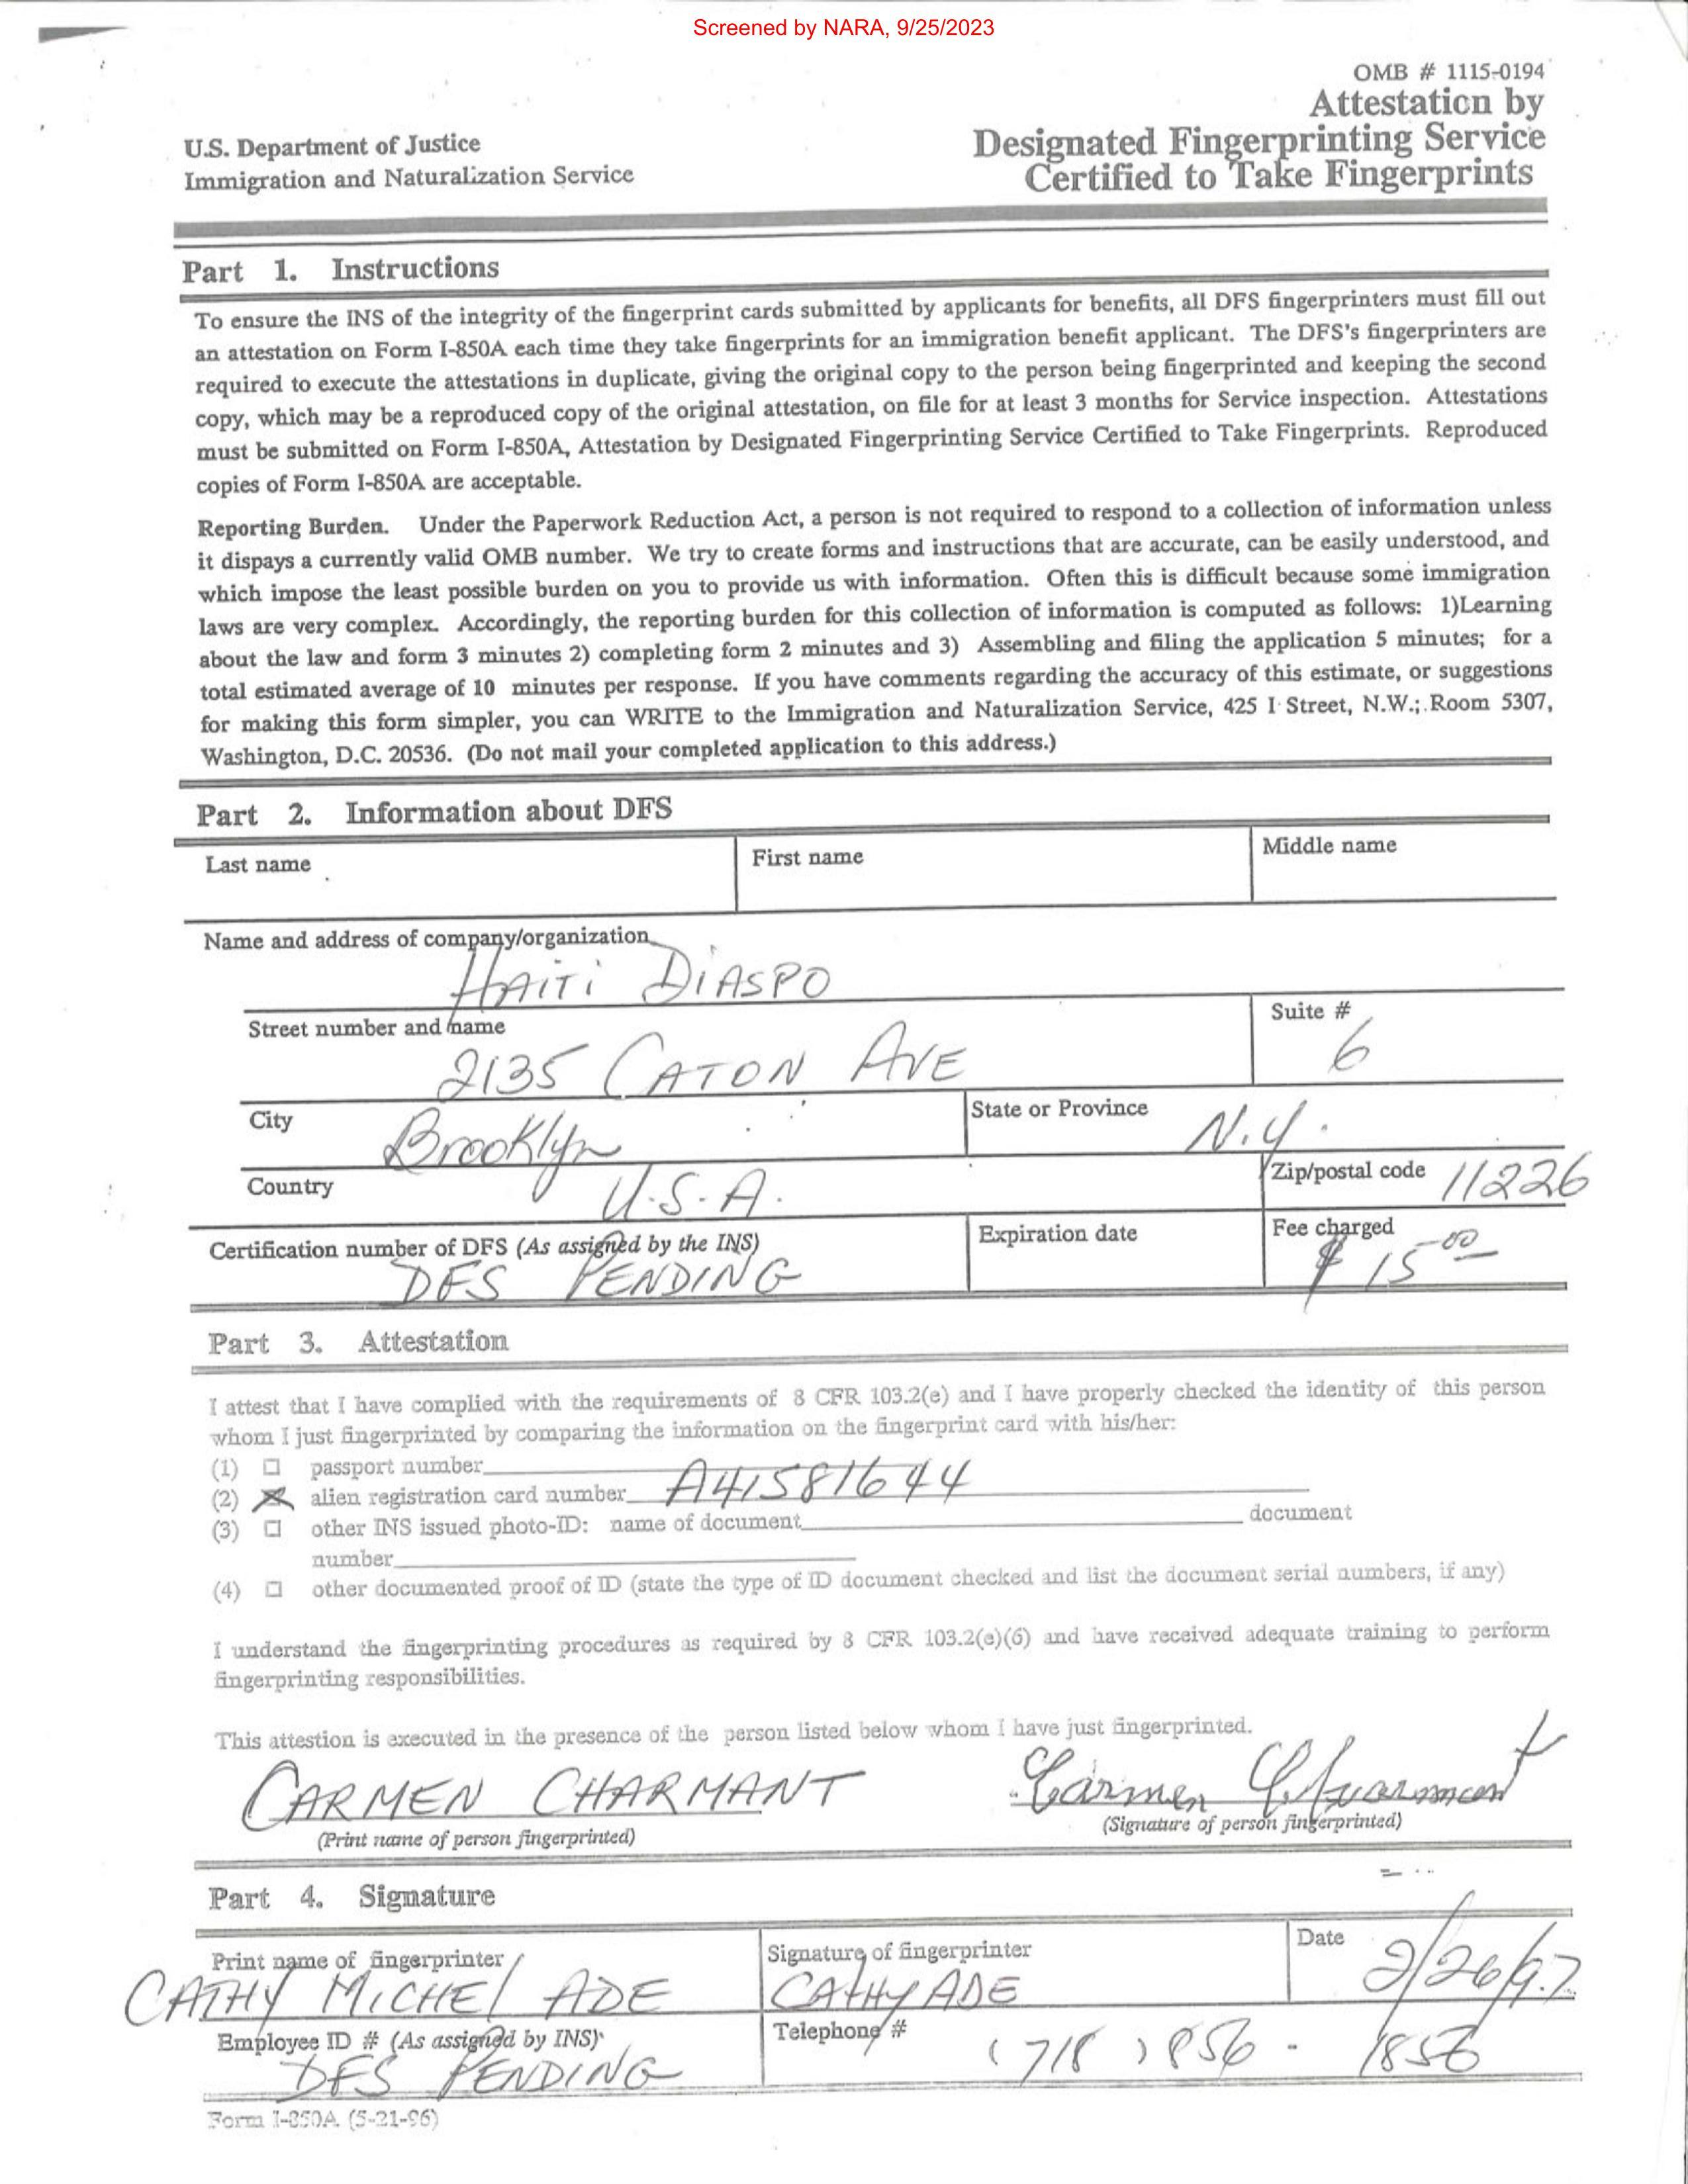 Screened by NARA, 9/25/2023
OMB # 1115-0194
Attestation by
Designated Fingerprinting Service
Certified to Take Fingerprints
U.S. Department of Justice
Immigration and Naturalization Service
Part 1. Instructions
To ensure the INS of the integrity of the fingerprint cards submitted by applicants for benefits, all DFS fingerprinters must fill out
an attestation on Form I-850A each time they take fingerprints for an immigration benefit applicant. The DFS's fingerprinters are
required to execute the attestations in duplicate, giving the original copy to the person being fingerprinted and keeping the second
copy, which may be a reproduced copy of the original attestation, on file for at least 3 months for Service inspection. Attestations
must be submitted on Form I-850A, Attestation by Designated Fingerprinting Service Certified to Take Fingerprints. Reproduced
copies of Form I-850A are acceptable.
Reporting Burden. Under the Paperwork Reduction Act, a person is not required to respond to a collection of information unless
it dispays a currently valid OMB number. We try to create forms and instructions that are accurate, can be easily understood, and
which impose the least possible burden on you to provide us with information. Often this is difficult because some immigration
laws are very complex. Accordingly, the reporting burden for this collection of information is computed as follows: 1)Learning
about the law and form 3 minutes 2) completing form 2 minutes and 3) Assembling and filing the application 5 minutes; for a
total estimated average of 10 minutes per response. If you have comments regarding the accuracy of this estimate, or suggestions
for making this form simpler, you can WRITE to the Immigration and Naturalization Service, 425 I Street, N.W.; Room 5307,
Washington, D.C. 20536. (Do not mail your completed application to this address.)
Part 2. Information about DFS
Last name First name Middle name
Name and address of company/organization
HAITI DIASPO
Street number and name Suite #
2135 CATON AVE 6
City State or Province
Brooklyn N.Y.
Country Zip/postal code 11226
U.S.A.
Certification number of DFS (As assigned by the INS) Expiration date Fee charged
DFS PENDING $ 15 00
Part 3. Attestation
I attest that I have complied with the requirements of 8 CFR 103.2(e) and I have properly checked the identity of this person
whom I just fingerprinted by comparing the information on the fingerprint card with his/her:
(1) passport number
(2) alien registration card number A41581644
(3) other INS issued photo-ID: name of document document
number
(4) other documented proof of ID (state the type of ID document checked and list the document serial numbers, if any)
I understand the fingerprinting procedures as required by 8 CFR 103.2(e)(6) and have received adequate training to perform
fingerprinting responsibilities.
This attestion is executed in the presence of the person listed below whom I have just fingerprinted.
CARMEN CHARMANT Carmen Charmant
(Print name of person fingerprinted) (Signature of person fingerprinted)
Part 4. Signature
Print name of fingerprinter Signature of fingerprinter Date
CATHY MICHEL ADE CATHY ADE 2/26/97
Employee ID # (As assigned by INS) Telephone #
DFS PENDING (718) 856 - 1856
Form I-850A (5-21-96)